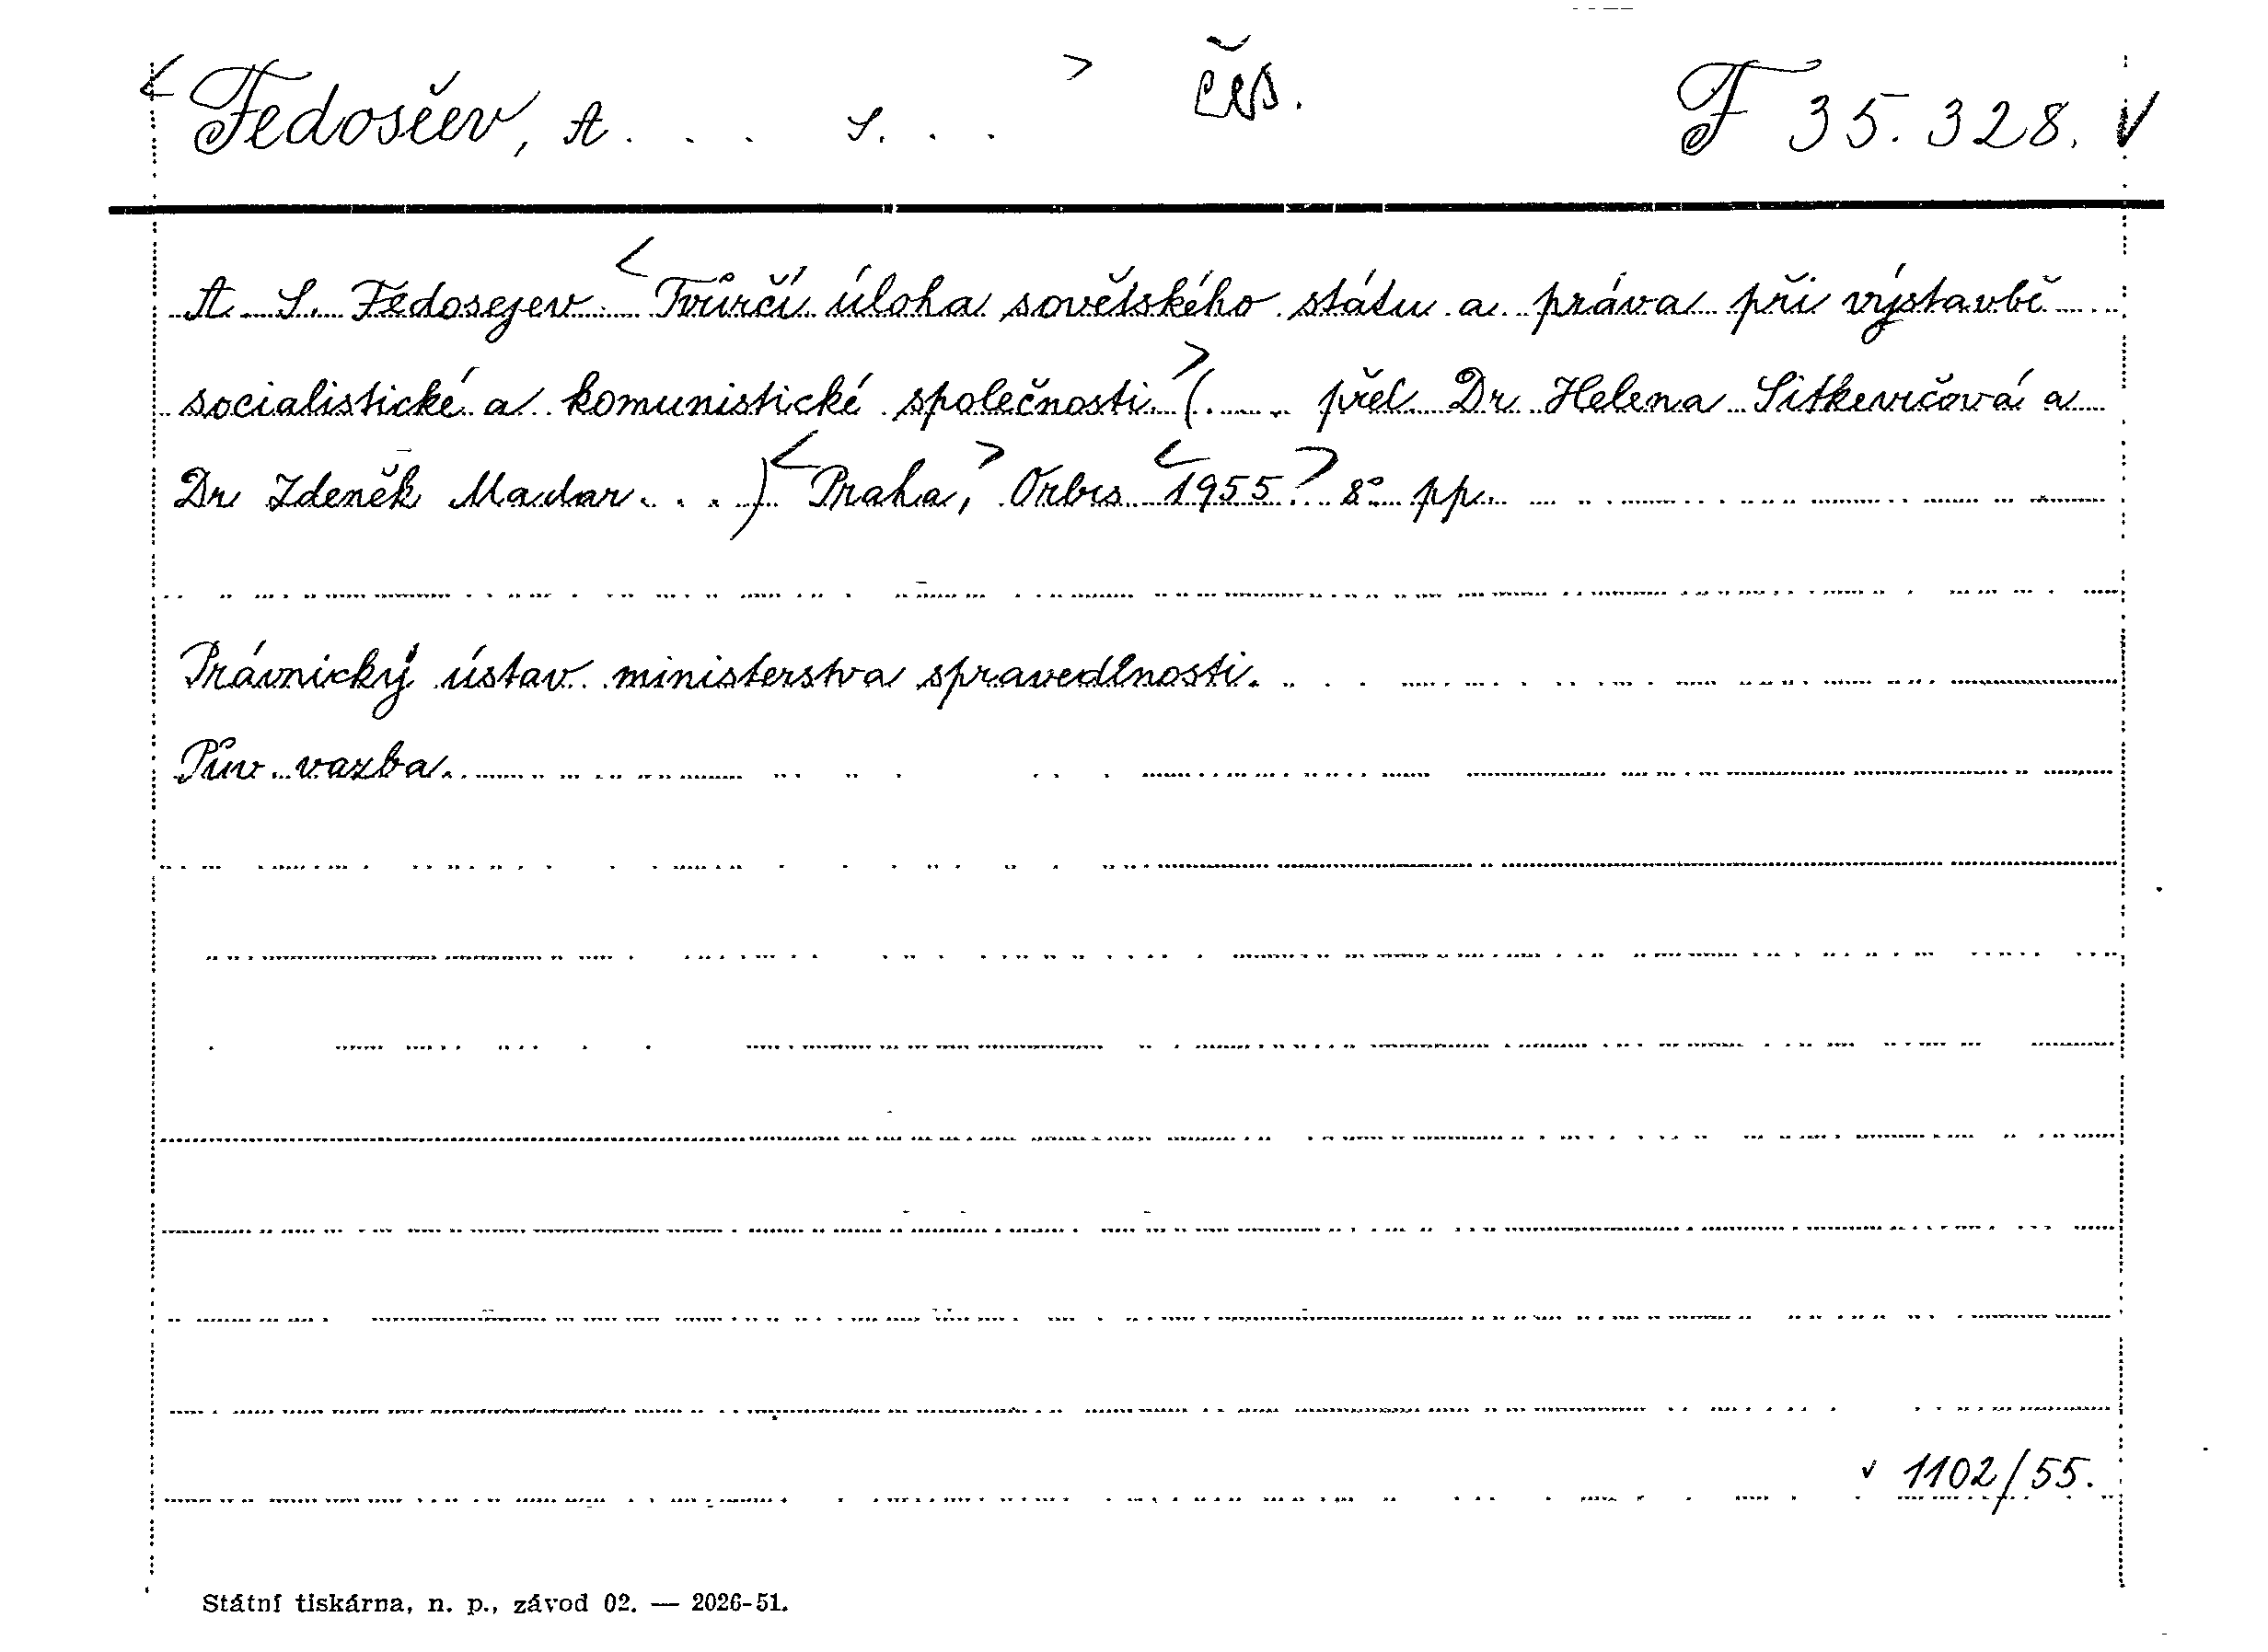 < Fedosěev, A. . . S. . . > čes. F 35.328. V
A. S. Fedosejev < Tvůrčí úloha sovětského státu a práva při výstavbě
socialistické a komunistické společnosti > (. . . . přel. Dr Helena Sitkevičová a
Dr Zdeněk Madar. . . ) < Praha, > Orbis < 1955. > 8° pp.
Právnický ústav ministerstva spravedlnosti.
Pův. vazba.
v 1102/55.
Státní tiskárna, n. p., závod 02. — 2026-51.